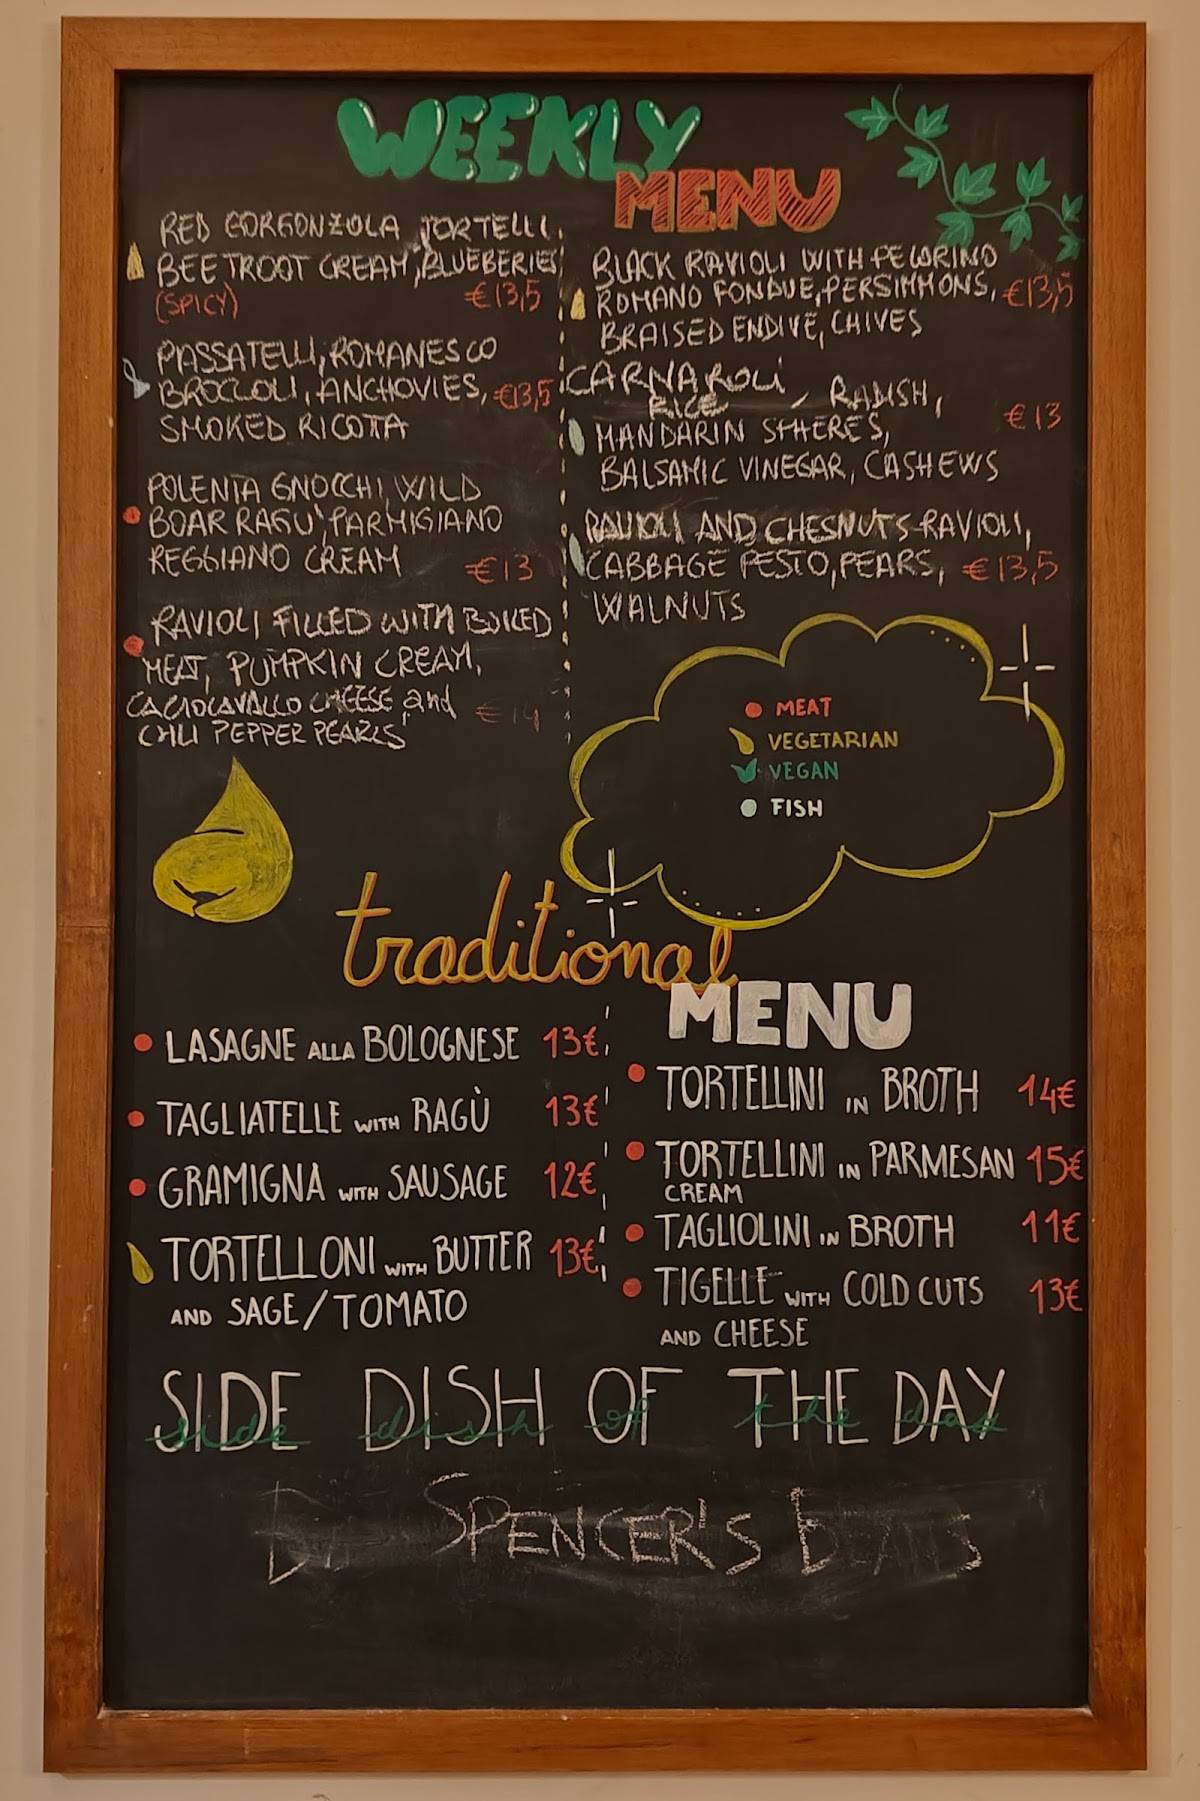 WEEKLY
MENU
RED GORGONZOLA TORTELLI,
BEETROOT CREAM, BLUEBERIES
(SPICY) €13,5
PASSATELLI, ROMANESCO
BROCCOLI, ANCHOVIES, €13,5
SMOKED RICOTTA
POLENTA GNOCCHI, WILD
BOAR RAGU', PARMIGIANO
REGGIANO CREAM €13
RAVIOLI FILLED WITH BOILED
MEAT, PUMPKIN CREAM,
CACIOCAVALLO CHEESE and €14
CHILI PEPPER PEARLS
BLACK RAVIOLI WITH PECORINO
ROMANO FONDUE, PERSIMMONS, €13,5
BRAISED ENDIVE, CHIVES
CARNAROLI
RICE, RADISH, €13
MANDARIN SPHERES,
BALSAMIC VINEGAR, CASHEWS
AND CHESNUTS RAVIOLI,
CABBAGE PESTO, PEARS, €13,5
WALNUTS
MEAT
VEGETARIAN
VEGAN
FISH
traditional
MENU
LASAGNE ALLA BOLOGNESE 13€
TAGLIATELLE WITH RAGÙ 13€
GRAMIGNA WITH SAUSAGE 12€
TORTELLONI WITH BUTTER 13€
AND SAGE/TOMATO
TORTELLINI IN BROTH 14€
TORTELLINI IN PARMESAN 15€
CREAM
TAGLIOLINI IN BROTH 11€
TIGELLE WITH COLD CUTS 13€
AND CHEESE
SIDE DISH OF THE DAY
side dish of the day
SPENCER'S